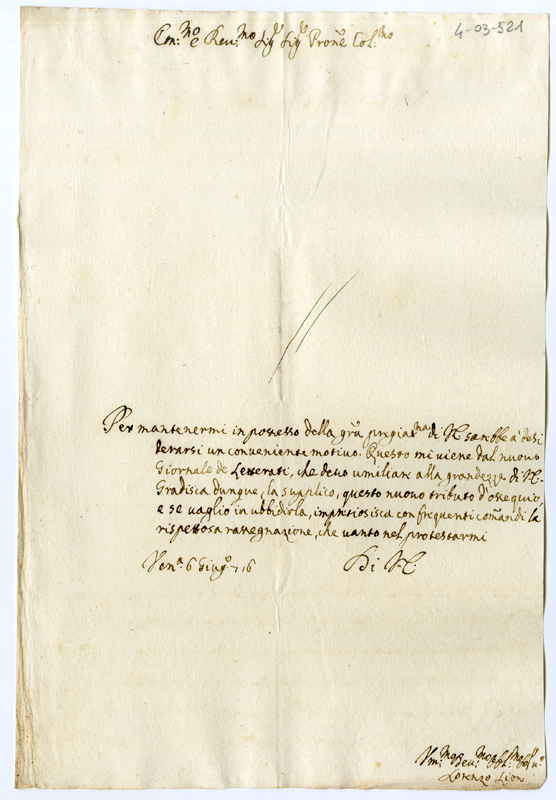 4-03-521
Em:mo e Rev:mo Sig.r Sig.r Pron̄e Col:mo
Per mantenermi in possesso della gr̃a pregiat.ma di V.E. sarebbe à desi
derarsi un conveniente motivo. Questo mi viene dal nuovo
Giornale de Letterati, che devo umiliare alla grandezza di V.E.
Gradisca dunque, la supplico, questo nuovo tributo d'ossequio,
e se vaglio in ubbidirla, impretiosisca con frequenti com̃andi la
rispettosa rassegnazione, che vanto nel protestarmi
Ven.a 6 Giug.o 716 Di V.E.
Um:mo Dev:mo Obl:mo
Lorenzo Lion